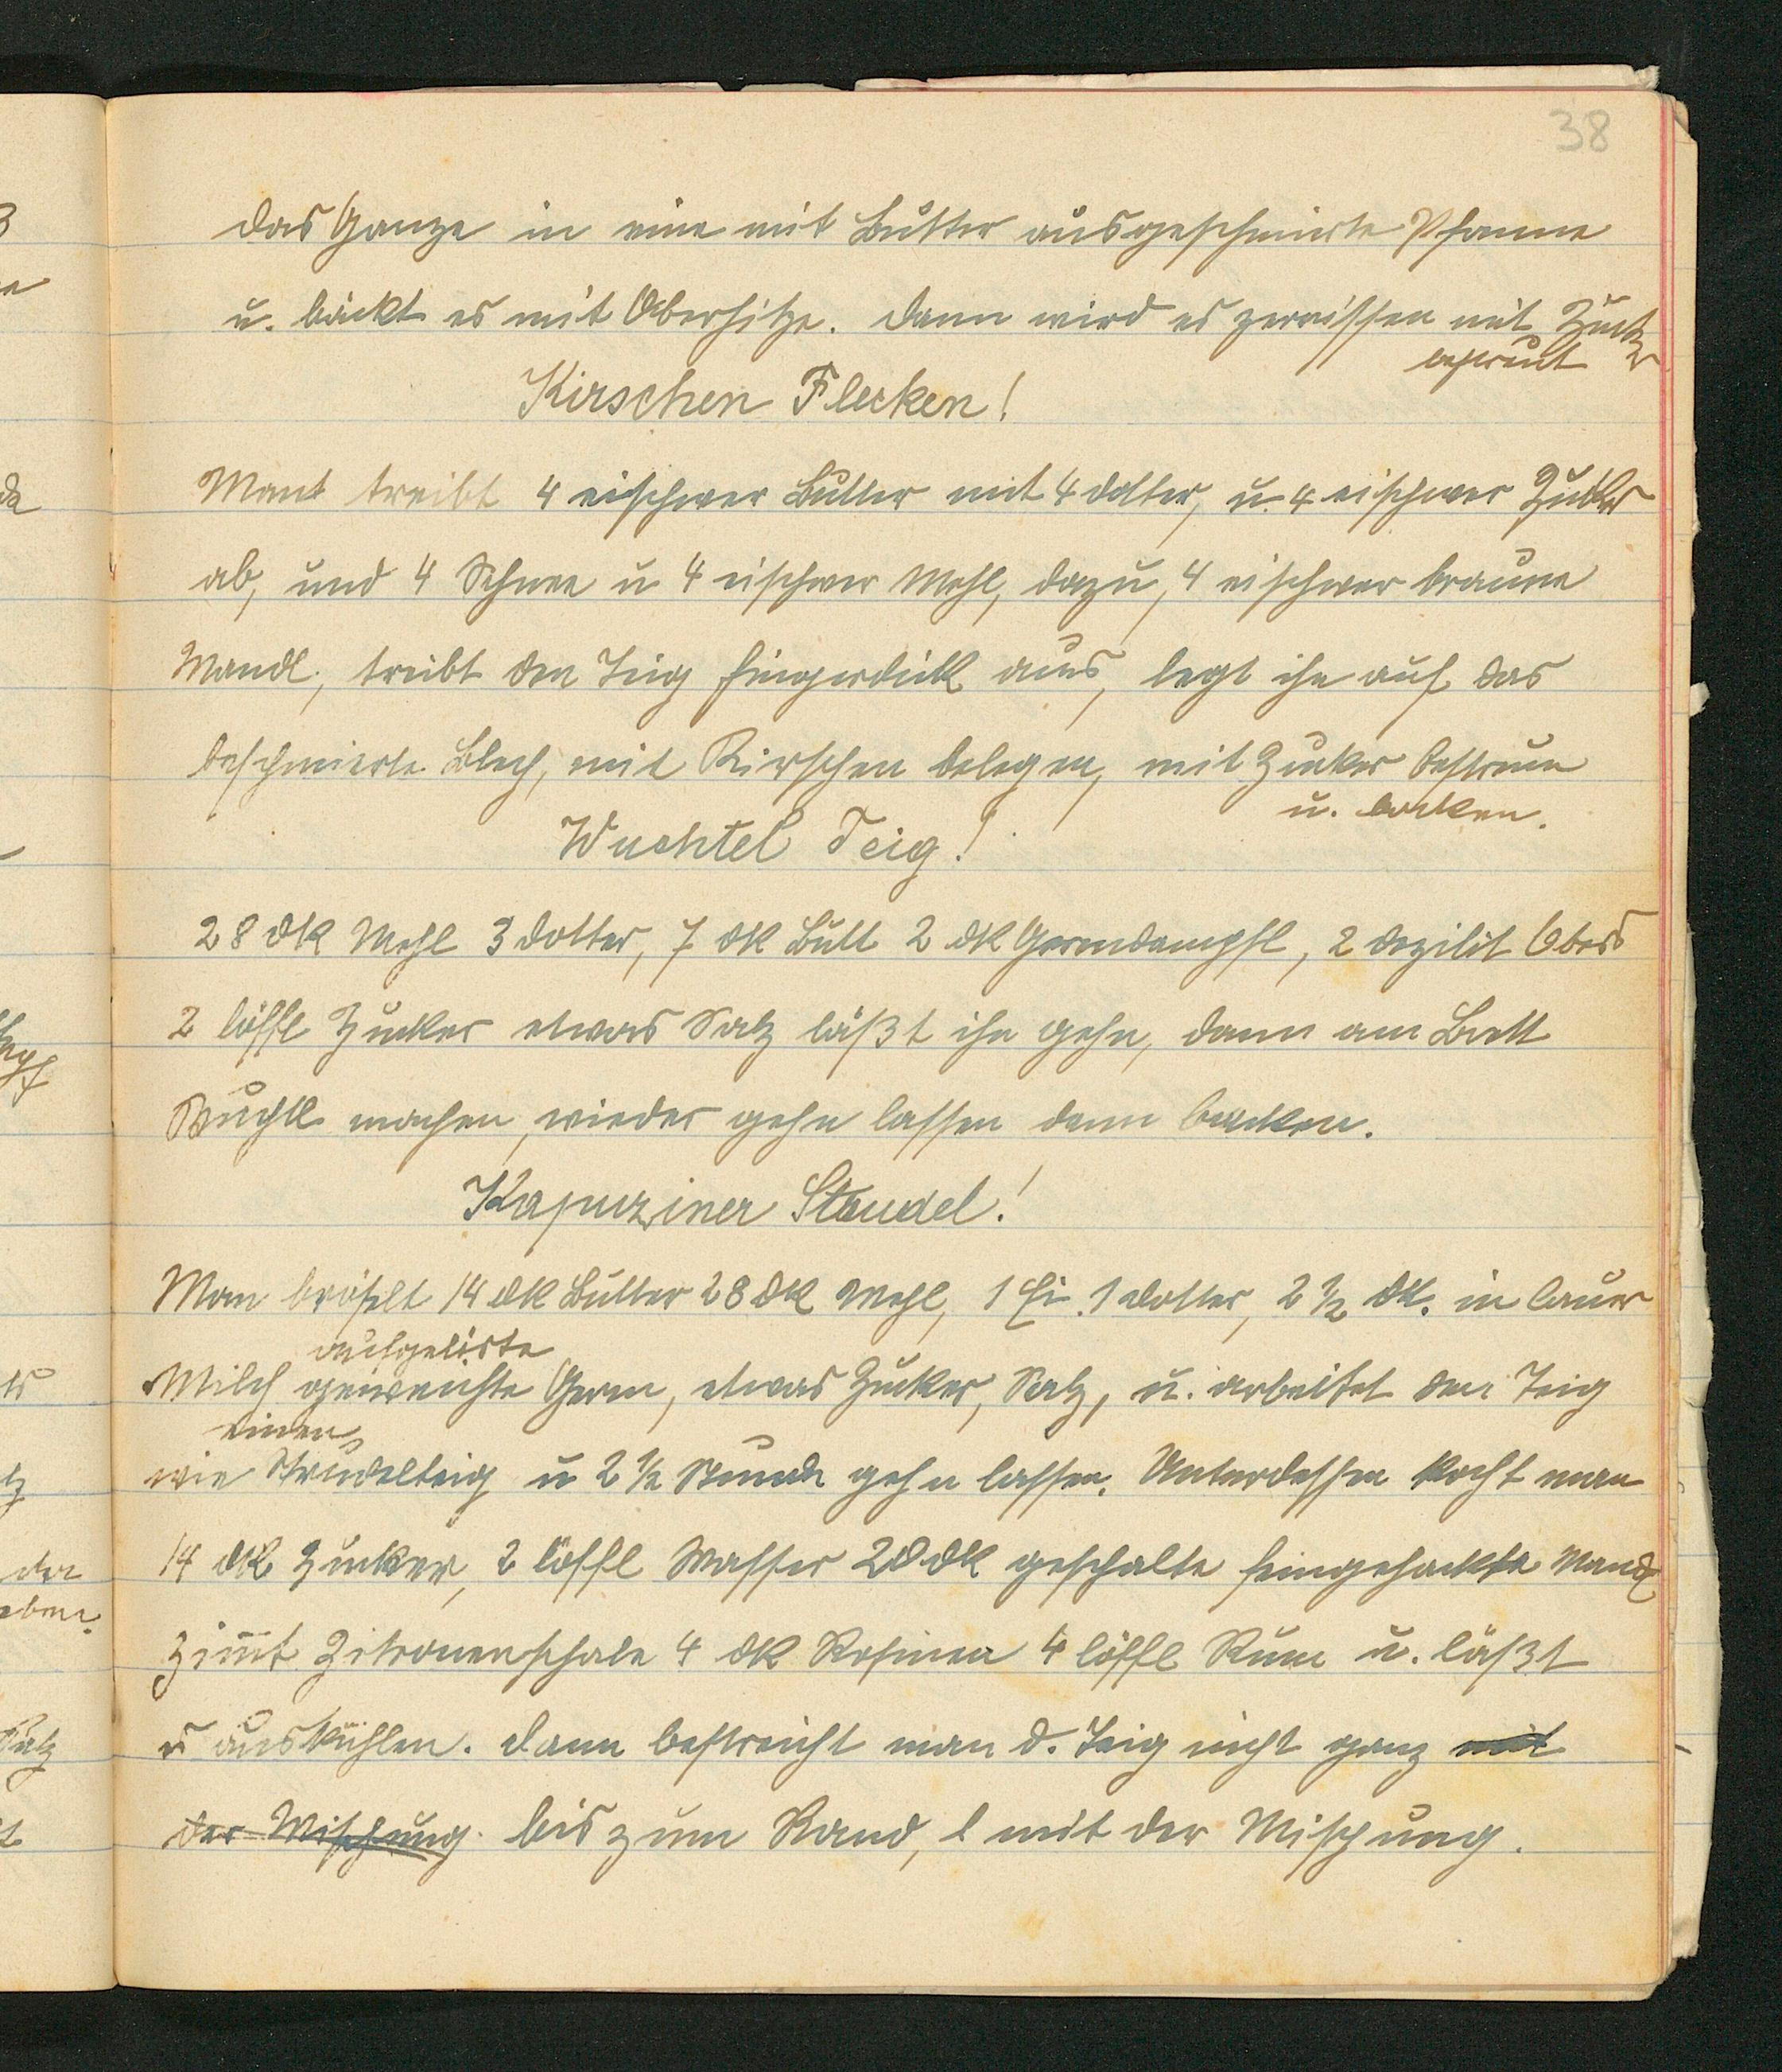 38
das Ganze in eine mit Butter ausgeschmierte Pfanne
u. bäckt es mit Oberhitze. Dann wird es zerrissen mit Zucker
bestreut
Kirschen Flecken!
Mant treibt 4 eischwer Butter mit 4 Dotter, u. 4 eischwer Zucker
ab, und 4 Schnee u 4 eischwer Mehl, dazu, 4 eischwer braune
Mandl., treibt den Teig fingerdick aus, legt ihn auf das
beschmierte Blech, mit Kirschen belegen, mit Zucker bestreun
u. backen.
Wuchtel Teig!
28 dk Mehl 3 Dotter, 7 dk Butt 2 dk Germdampfl, 2 Dezilit Obers
2 löffl Zucker etwas Salz läßt ihn gehn, dann am Brett
Wuchtl machen, wieder gehn lassen dann backen.
Kapuziner Strudel!
Man bröselt 14 dk Butter 28 dk Mehl, 1 Ei. 1 Dotter, 2 ½ dk. in lauer
aufgelöste
Milch geweichte Germ, etwas Zucker, Salz, u. arbeitet den Teig
einen
wie Strudelteig u 2 ½ Stunde gehn lassen. Unterdessen kocht man
14 dk Zucker, 2 löffl Wasser 20 dk geschälte feingehackte Mandl
Zimt Zitronenschale 4 dk Rosinen 4 löffl Rum u. läßt
es auskühlen. Dann bestreicht man d. Teig nicht ganz mit
der Mischung bis zum Rand, mit der Mischung.